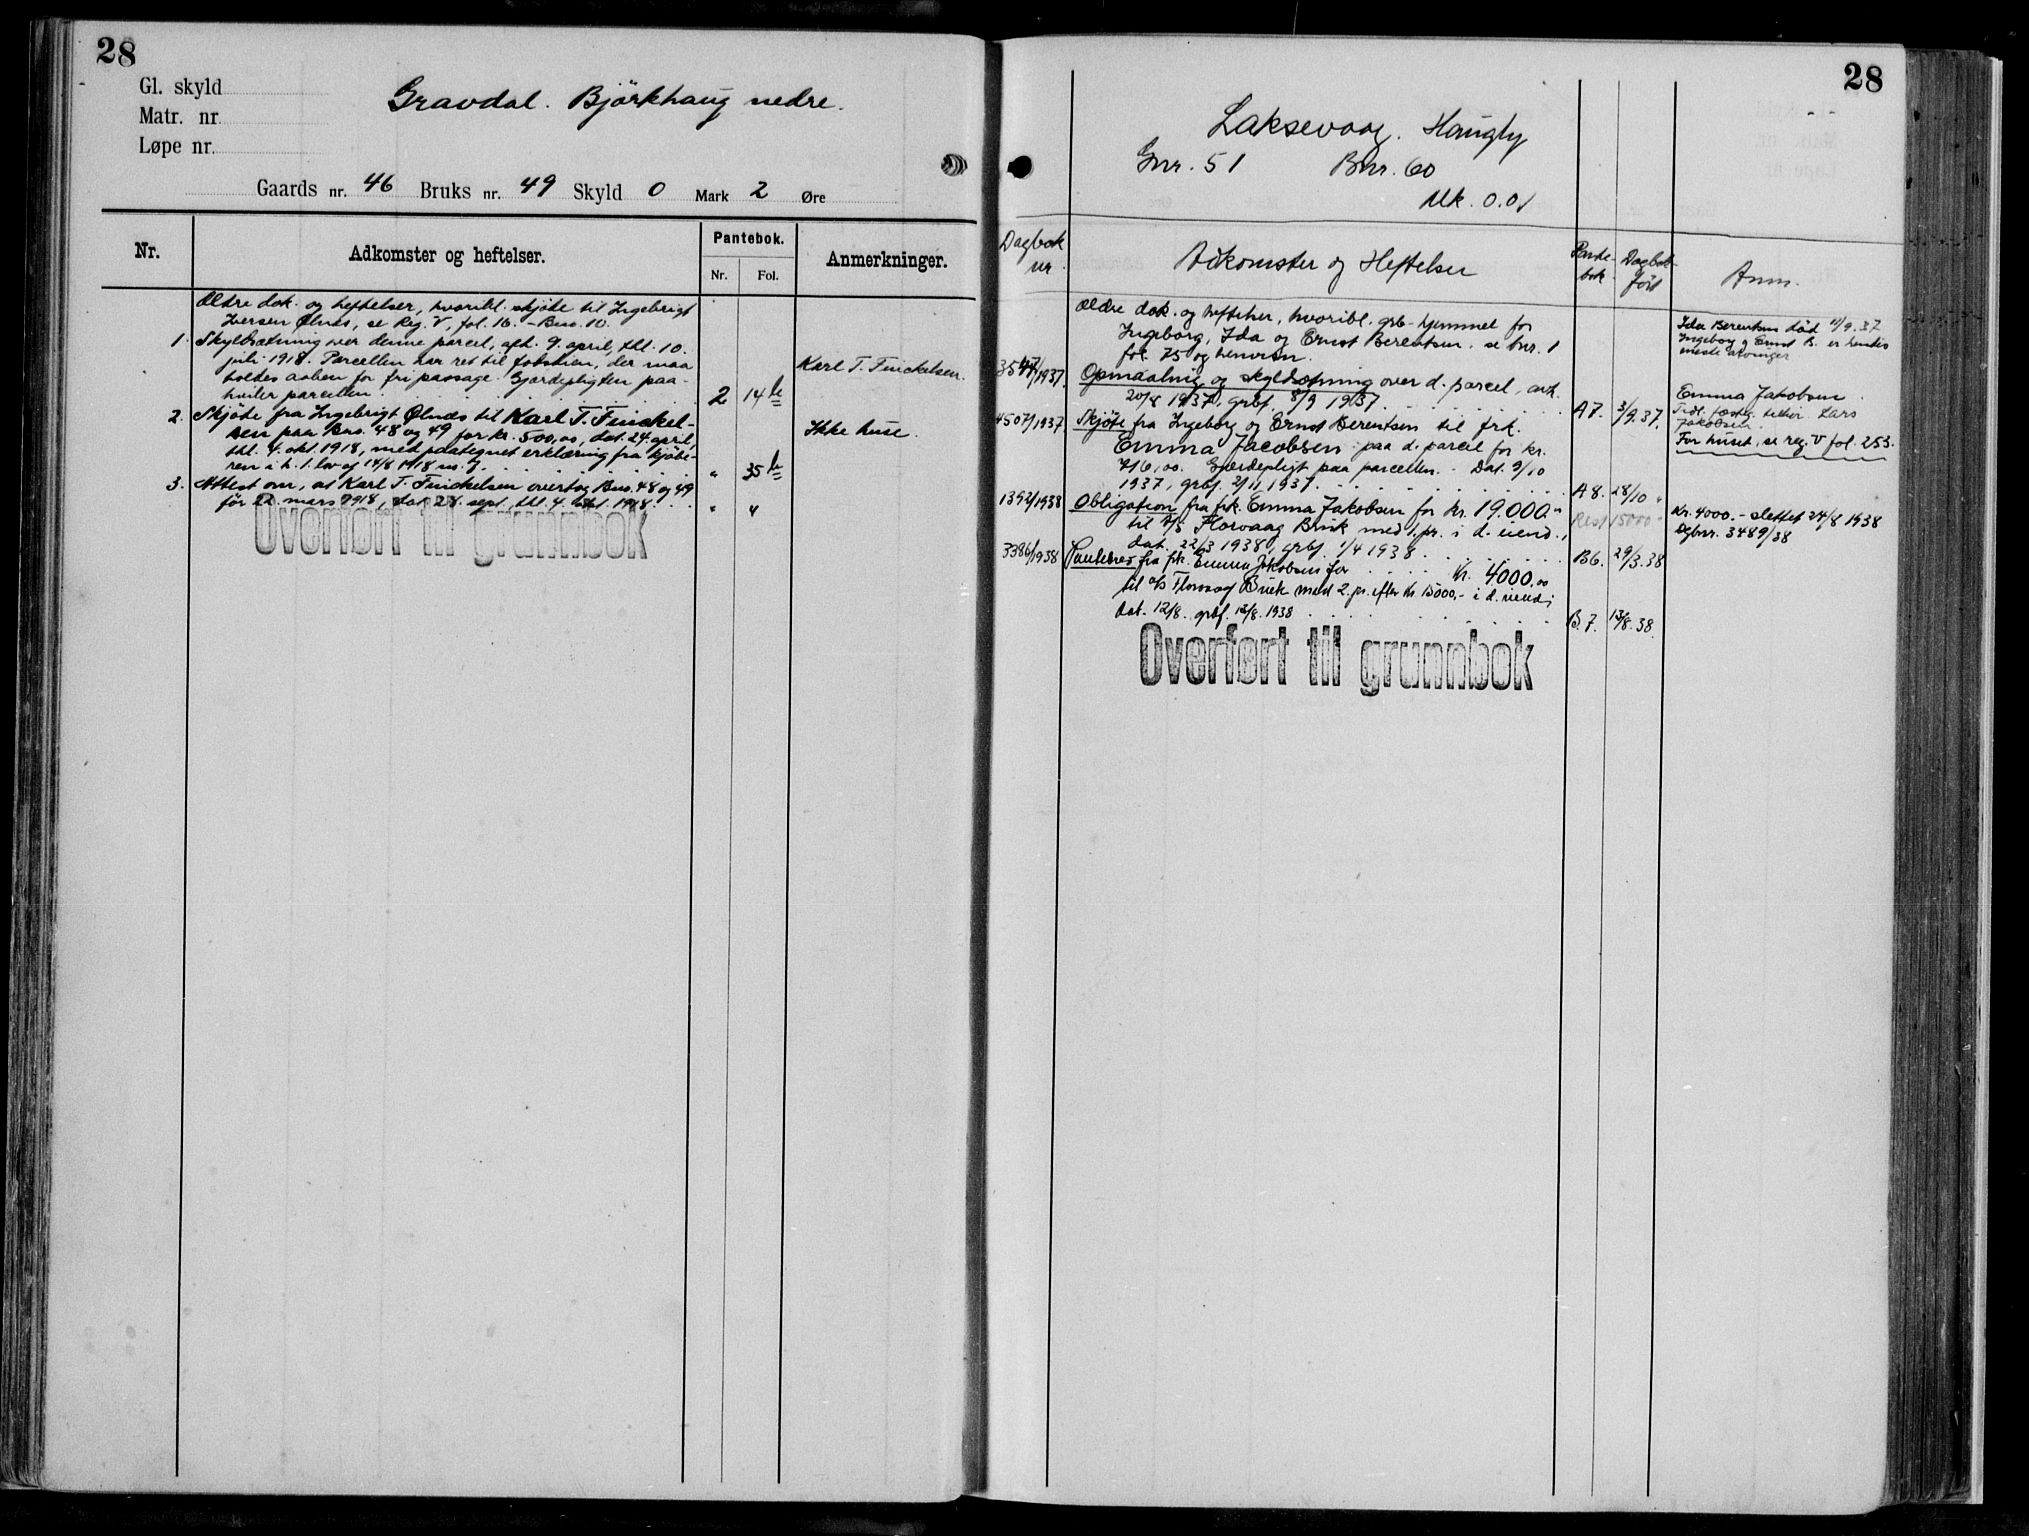 28
Gl. skyld
Matr. nr.
Løpe nr.
Gravdal. Bjørkhaug nedre.
Gaards nr. 46 Bruks nr. 49 Skyld 0 Mark 2 Øre
Nr.
Adkomster og heftelser.
Pantebok.
Nr. Fol.
Anmerkninger.
Ældre dok. og heftelser, hvoribl. skjøte til Ingebrigt
Iversen Ølnæs, se Reg. V, fol. 16. - Bno. 10.
1. Skyldsætning over denne parcel, afh. 9. april, thl. 10.
juli 1918. Parcellen har ret til, der maa
holdes aaben for fri passage. Gjærdepligten paa-
hviler parcellen. 2 14 b
Karl T. Finckelsen.
2. Skjøte fra Ingebrigt Ølnæs til Karl T. Finckel-
sen paa Bno. 48 og 49 for kr. 500,00, dat. 24 april,
thl. 4. okt. 1918, med paategnet erklæring fra kjøbe-
ren i h. t. lov af 14/8 1918 no. 7. " 35 b
Ikke huse.
3. Attest om, at Karl T. Finckelsen overtog Bno. 48 og 49
før 22. mars 1918, dat. 28. sept., thl. 4. okt. 1918. " "
Overført til grunnbok
28
Laksevaag. Haugly
Gnr. 51 Bnr. 60
Mk. 0.01
Dagbok nr.
Adkomster og Heftelser
Pante-
bok
Dagbok-
ført
Anm.
Ældre dok. og heftelser, hvoribl. grb.-hjemmel for
Ingeborg, Ida og Ernst Berentsen. se bnr. 1
fol. 75 og henvisn.
Ida Berentsen død 11/9.37
Ingeborg og Ernst B. er hendes
neste arvinger
3547/1937. Opmaaling og skyldsætning over d. parcel, avh.
20/8 1937, grbf. 8/9 1937. A 7. 3/9.37.
Emma Jakobsen.
Tidl. fæstg. tilhør. Lars
Jakobsen.
For huset, se reg. V fol. 253.
4507/1937 Skjøte fra Ingeborg og Ernst Berentsen til frk.
Emma Jacobsen paa d. parcel for kr.
716,00. Gjærdepligt paa parcellen. - Dat. 9/10
1937, grbf. 2/11 1937. A 8. 28/10 "
1392/1938 Obligation fra frk. Emma Jakobsen for kr. 19.000.-
til A/S Florvaag Bruk med 1. pr. i d. eiend.,
dat. 22/3 1938, grbf. 1/4 1938. B6. 29/3.38
Rest 15000.-
Kr. 4000.- slettet 24/8 1938
Dgbnr. 3489/38
3386/1938 Pantebrev fra frk. Emma Jakobsen for Kr. 4000.00
til a/s Florvaag Bruk med 2. pr. efter kr. 15000.- i d. eiend;
dat. 12/8. grbf. 15/8. 1938. B. 7. 13/8.38.
Overført til grunnbok